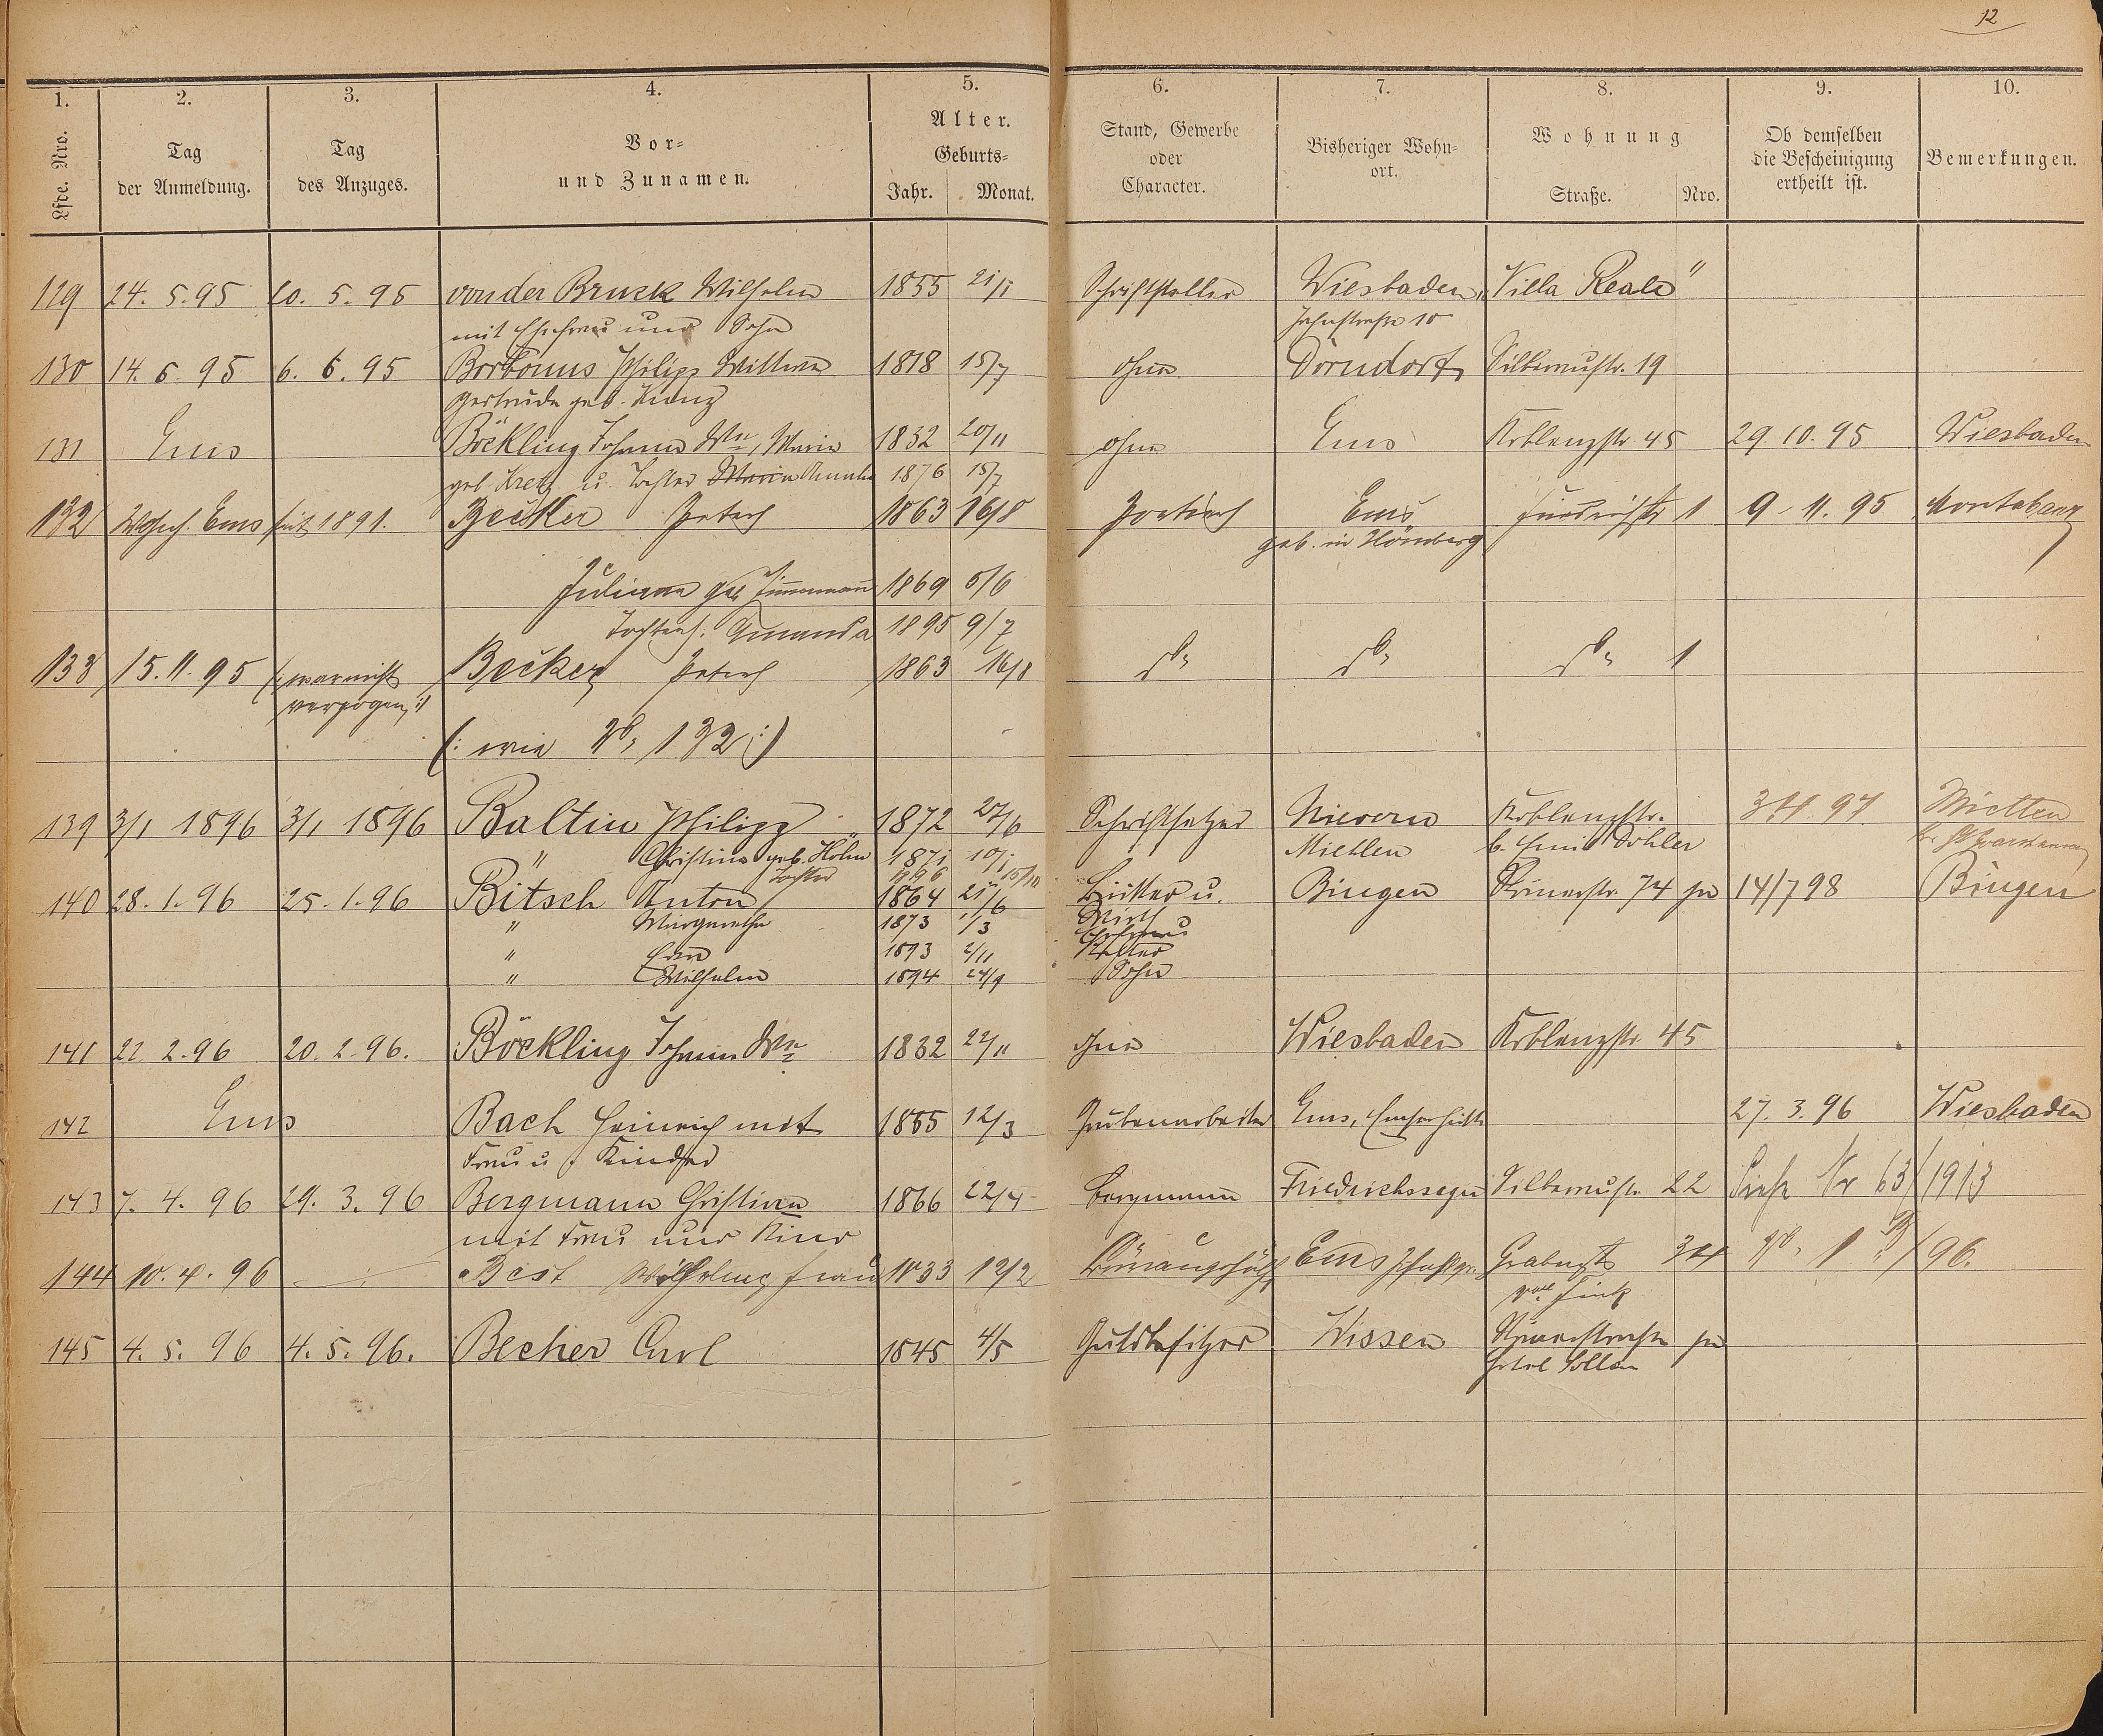 12
1. 2. 3. 4. 5. 6. 7. 8. 9. 10.
Lfde. Nro. Tag der Anmeldung. Tag des Anzuges. Vor- und Zunamen. Alter. Geburts- Jahr. Monat. Stand, Gewerbe oder Character. Bisheriger Wohn- ort. Wohnung Straße. Nro. Ob demselben die Bescheinigung ertheilt ist. Bemerkungen.
129 24. 5. 95 20. 5. 95 von der Bruck Wilhelm 1855 21/1 Schriftsteller Wiesbaden „Villa Reale"
mit Ehefrau und Sohn Jahnstraße 10
130 14. 6. 95 6. 6. 95 Borbonus Philipp Wittwe 1818 15/7 ohne Dörndorf Silberaustr. 19
Gertrude geb. Kunz
131 Ems Böckling Johann Ww, Maria 1832 20/11 ohne Ems Koblenzstr. 45 29. 10. 95 Wiesbaden
geb. Kretz u. Tochter Maria 1876 15/7
132 Ems seit 1891. Becker Peter 1863 16/8 Portier Ems Friedrichstr 1 9. 11. 95 Montabaur
geb. in Hömberg
Juliana geb. Zimmermann 1869 5/6
Tochter: Amanda 1895 9/7
133 15. 11. 95 (: war nicht Becker Peter 1863 16/8 do do do 1
verzogen :)
(: wie No 132 :)
139 3/1 1896 3/1 1896 Baltin Philipp 1872 27/6 Schriftsetzer Nievern Koblenzstr. 97 Miellen
" Christine geb. Höhn 1871 10/1 Miehlen b. Emil Dohler
Tochter 1896 15/10
140 28. 1. 96 25. 1. 96 Bitsch Anton 1864 21/6 u. Bingen Römerstr. 74 14/7 98 Bingen
" Margarethe 1873 1/3 Wirth
Ehefrau
" 1893 2/11 Tochter
" Wilhelm 1894 24/9 Sohn
141 22. 2. 96 20. 2. 96. Böckling Johann Ww 1832 22/11 ohne Wiesbaden Koblenzstr. 45
142 Ems Bach Heinrich mit 1865 12/3 Grubenarbeiter Ems, Emserhütte 27. 3. 96 Wiesbaden
Frau u. Kinder
143 7. 4. 96 29. 3. 96 Bergmann Christian 1866 22/4 Bergmann Friedrichssegen Silberaustr. 22 Siehe Nr 63/1913
mit Frau und Kind
144 10. 4. 96 Best Wilhelm, Frau 1833 12/2 Ems Grabenstr. 34 No 1 /96.
Fink
145 4. 5. 96 4. 5. 96. Becher Carl 1845 4/5 Gutsbesitzer Wissen Römerstraße
Hotel